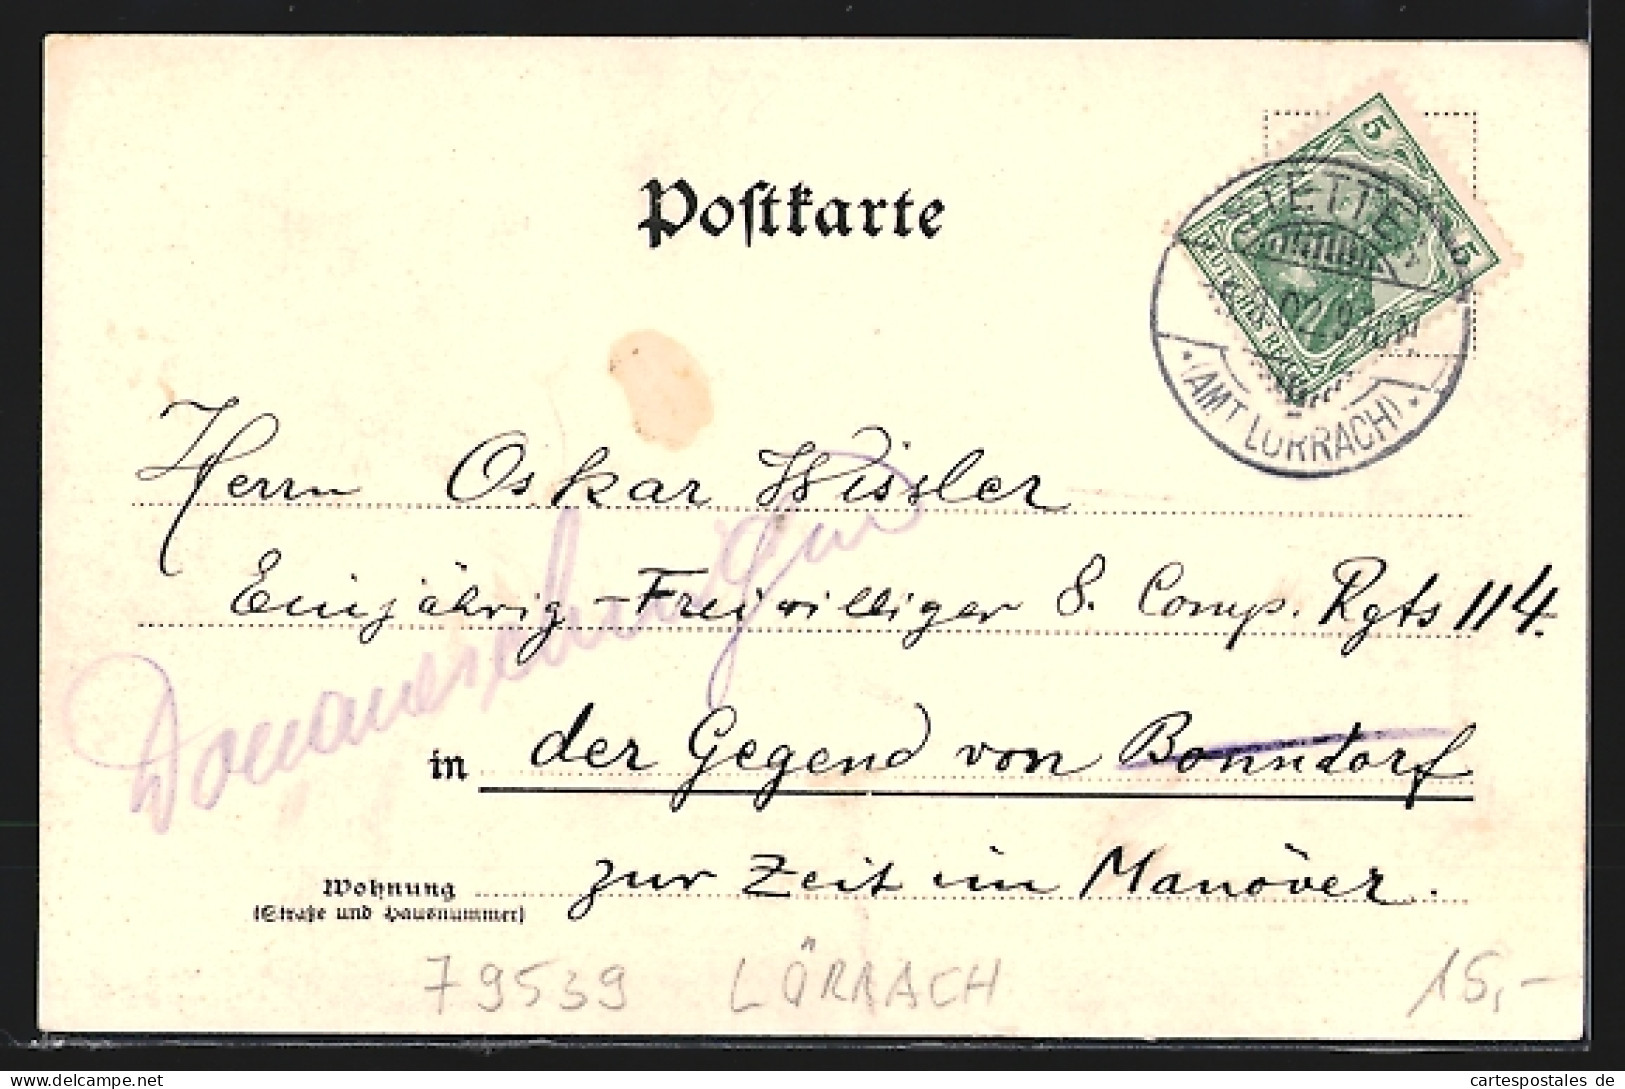 Postkarte
5
5
DEUTSCHES REICH
STETTEN
(AMT LÖRRACH)
Herrn Oskar Wissler
Einjährig-Freiwilliger 8. Comp. Rgts 114.
Donaueschingen
in der Gegend von Bonndorf
zur Zeit im Manöver.
Wohnung
(Straße und Hausnummer)
79539 LÖRRACH 15,-
cartespostales de